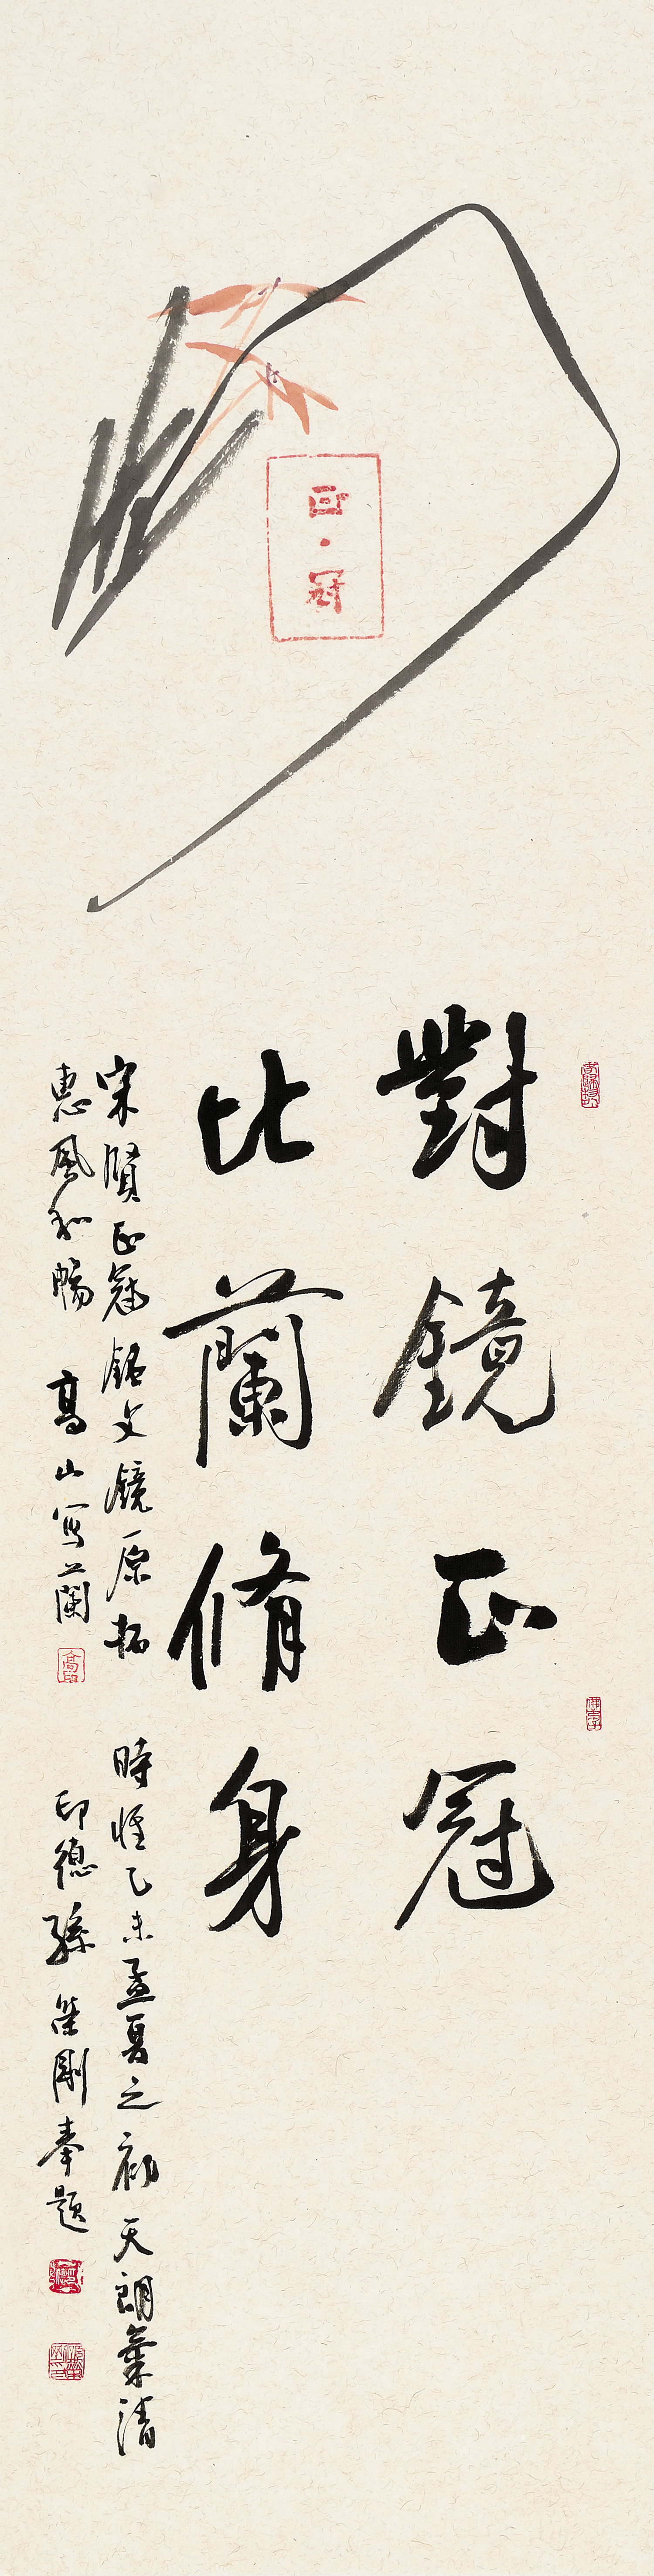 正·冠
對鏡正冠
比蘭脩身
宋賢正冠銘文鏡原拓 時惟乙未孟夏之初 天朗氣清
惠風和暢 高山寫蘭 印德 孫 剛奉題